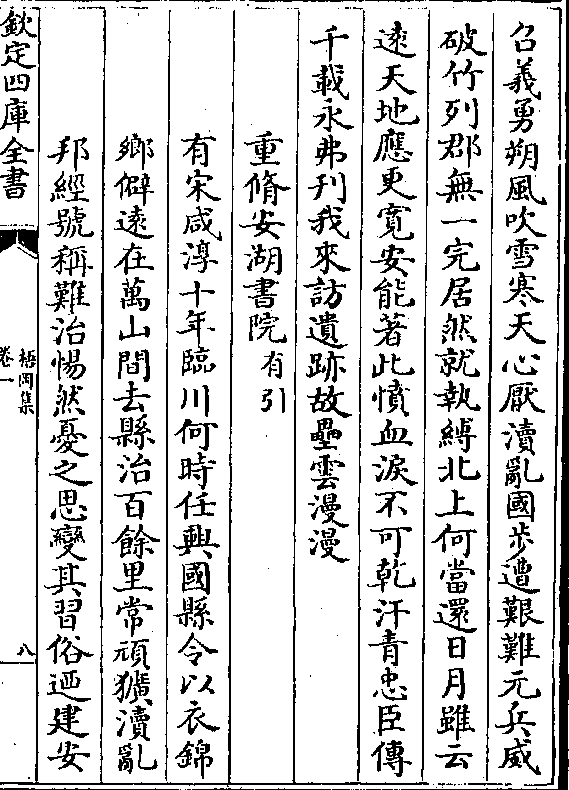 召義勇朔風吹雪寒天心厭瀆亂國步遭艱難元兵威
破竹列郡無一完居然就執縛北上何當還日月雖云
遠天地應更寬安能著此憤血淚不可乾汗青忠臣傳
千載永弗刊我來訪遺跡故壘雲漫漫
重脩安湖書院有引
有宋咸淳十年臨川何時任興國縣令以衣錦
鄉僻遠在萬山間去縣治百餘里常頑獷瀆亂
邦經號稱難治惕然憂之思變其習俗迺建安
欽定四庫全書
梧岡集
卷一
八